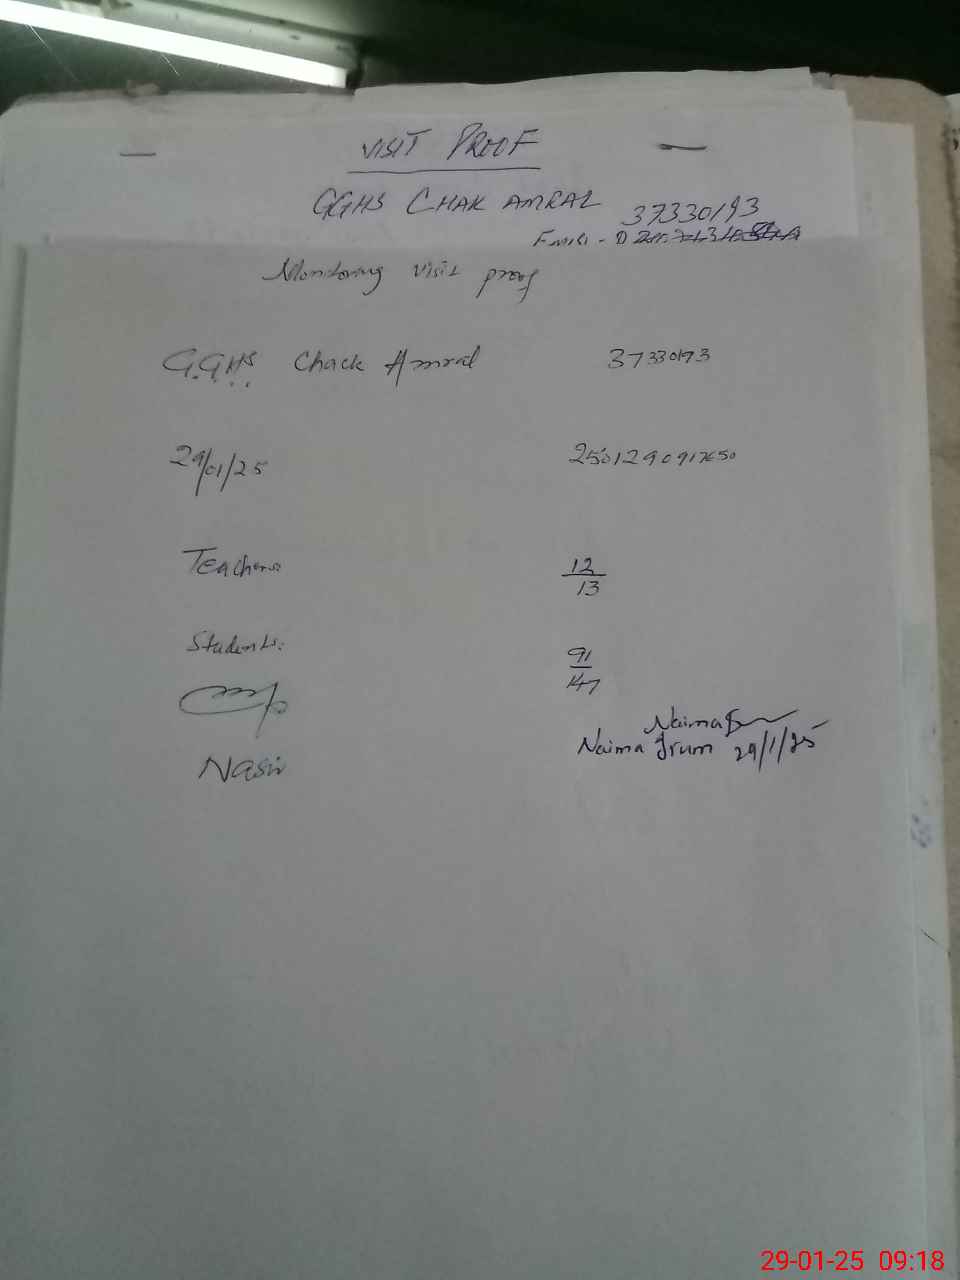 VISIT PROOF
GGHS CHAK AMRAL 37330193
Monitoring visit proof
G.G.H.S Chack Amral 37330193
29/01/25 250129091650
Teachers: 12/13
Students: 91/147
Naima
Nasir Naima Irum 29/1/25
29-01-25 09:18